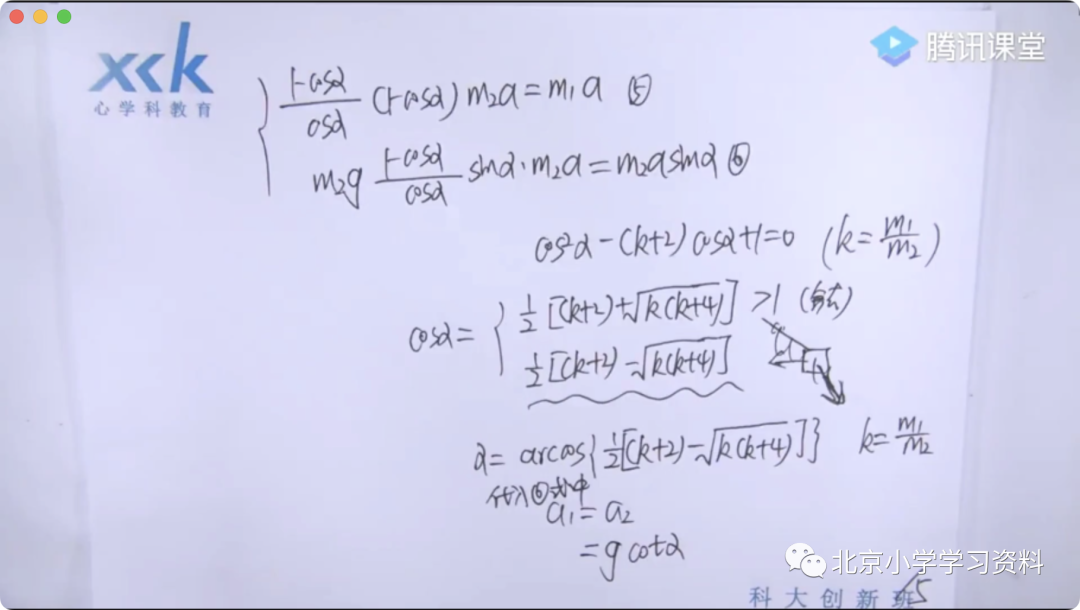 xck
心学科教育
腾讯课堂
(1-cosα)/cosα (1-cosα) m₂a = m₁a ⑤
m₂g (1-cosα)/cosα sinα·m₂a = m₂a sinα ⑥
cos²α-(k+2)cosα+1=0 (k=m₁/m₂)
cosα= { ½[(k+2)+√k(k+4)] >1 (舍去)
½[(k+2)-√k(k+4)]
α= arccos{½[(k+2)-√k(k+4)]} k=m₁/m₂
代入⑥式中
a₁=a₂
=g cotα
北京小学学习资料
科大创新班